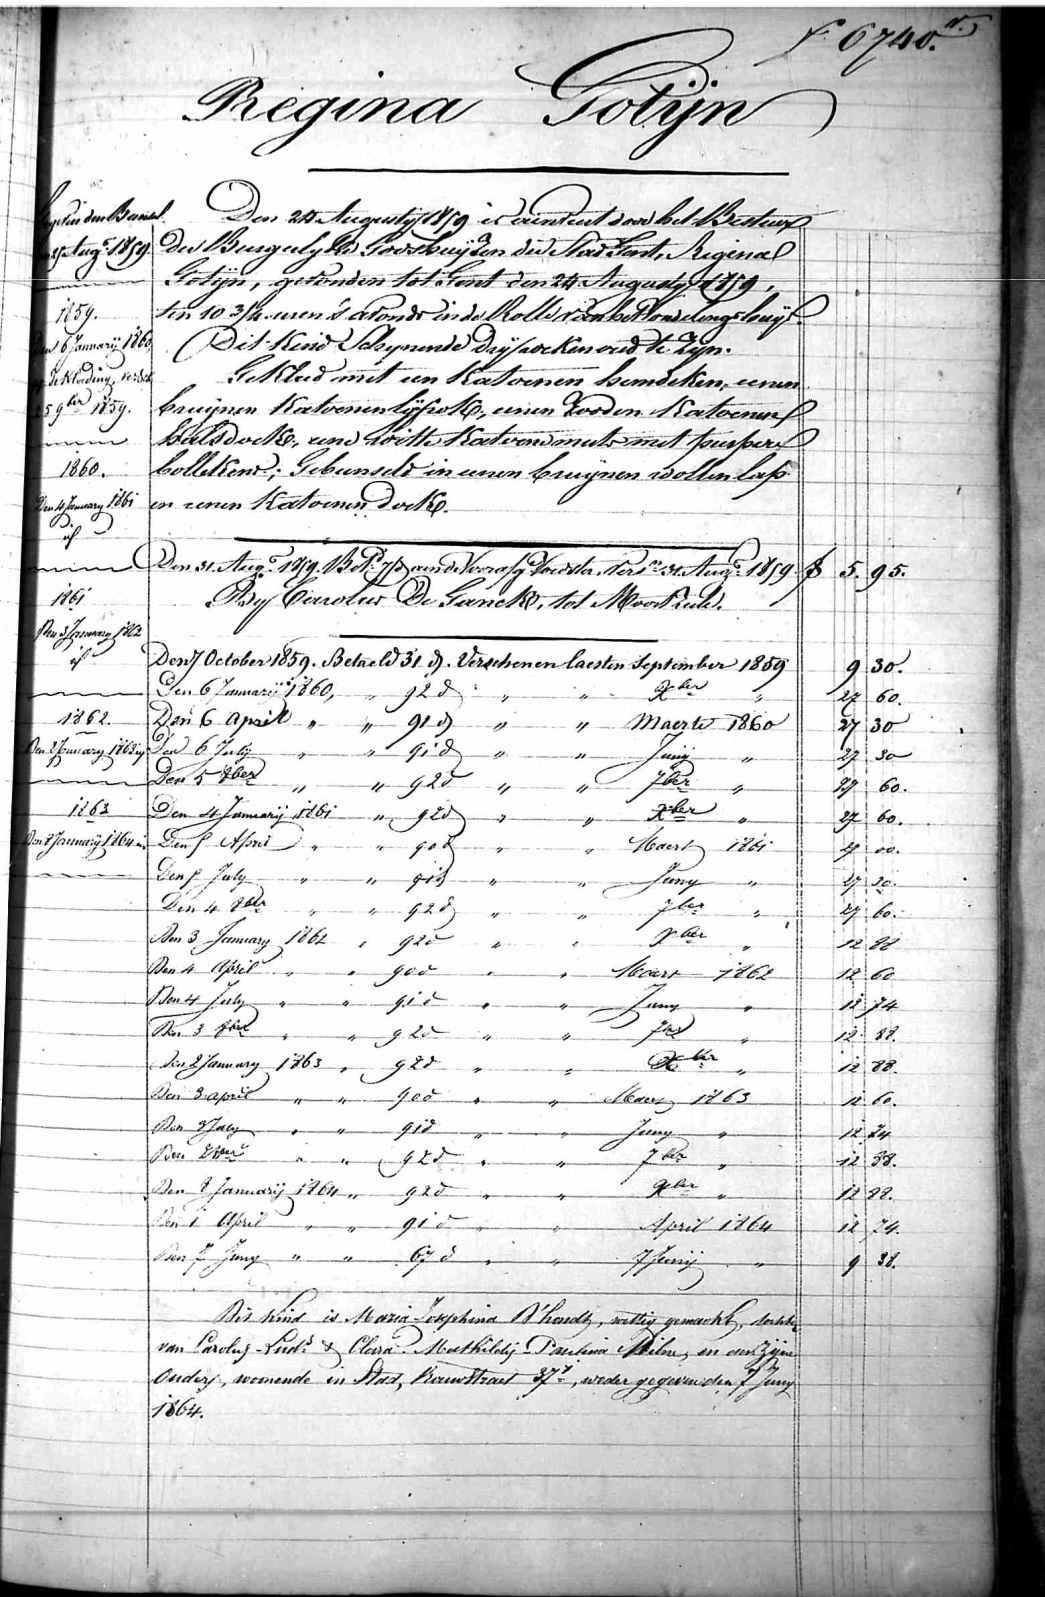 6740.
Regina Gotijn
Den 24 Augusty 1859 is door het Bestuur
Der Burgerlyke Godshuyzen der Stad Gent, Regina
Gotijn, gevonden tot Gent den 24 Augusty 1859,
ten 10 3/4 uren 's avonds in de Rolle van het Vondelingshuys.
Dit Kind Schynende dry weken oud te zyn.
Gekleed met een Katoenen hemdeken, eenen
bruynen Katoenen lyfrok, eenen rooden Katoenen
halsdoek, eene witte Katoene muts met purpere
bollekens; Gebunseld in eenen bruynen wollen lap
en eenen Katoenen doek.
1859.
Den 6 January 1860
25 9ber 1859.
1860.
Den 4 January 1861
id
1861
Den 3 January 1862
id
1862.
Den 2 January 1863 id
1863
Den 2 January 1864 id
Den 31. Augs. 1859. Bet. 7 d aen de Voorafg. Voedster, Vers. 31. Augs. 1859. f 5. 95.
By Carolus De Ganck, tot Moortzeele.
Den 7 October 1859. Betaeld 31. d. Verschenen laesten September 1859 9 30.
Den 6 January 1860, " 92 d " " Xber " 27 60.
Den 6 April " " 91 d " " Maerte 1860 27 30
Den 6 July " " 91 d " " Juny " 27 30
Den 5 8ber " " 92 d " " 7ber " 27 60.
Den 4 January 1861 " 92 d " " Xber " 27 60.
Den 5 April " " 90 d " " Maert 1861 27 00.
Den 5 July " " 91 d " " Juny " 27 30.
Den 4 8ber " " 92 d " " 7ber " 27 60.
Den 3 January 1862 " 92 d " " Xber " 12 88
Den 4 April " " 90 d " " Maert 1862 12 60
Den 4 July " " 91 d " " Juny " 12 74
Den 3 8ber " " 92 d " " 7ber " 12 88.
Den 2 January 1863 " 92 d " " Xber " 12 88.
Den 3 april " " 90 d " " Maert 1863 12 60.
Den 3 July " " 91 d " " Juny " 12 74
Den 2 8ber " " 92 d " " 7ber " 12 88.
Den 2 January 1864 " 92 d " " Xber " 12 88.
Den 1 April " " 91 d " " April 1864 12 74.
Den 7 Juny " " 67 d " " 7 Juny " 9 38.
Dit kind is Maria Josephina D'hondt, wettig gemaekt, dochter
van Carolus Luds & Clara Mathildij Paulina Milne, en aen zijne
Ouders, woonende in Stad, straet 37, weder gegeven den 7 Juny
1864.